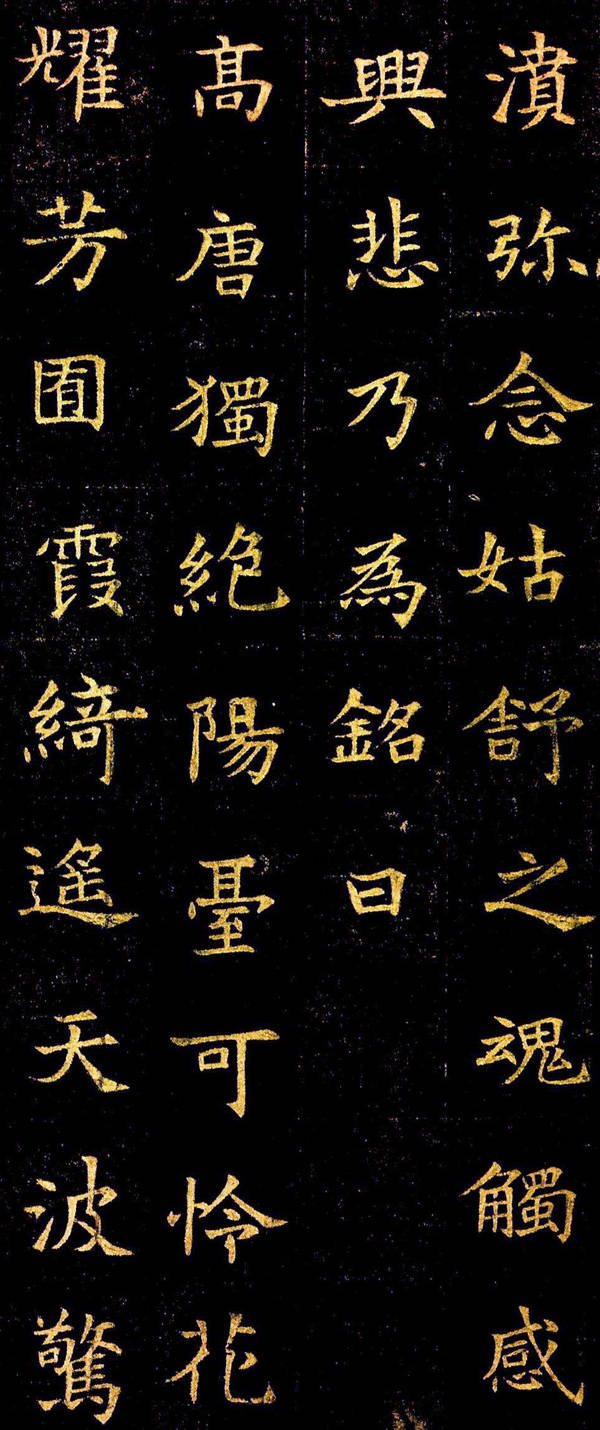 濆弥念姑舒之魂觸感
興悲乃為銘曰
高唐獨絕陽臺可怜花
耀芳囿霞綺遙天波驚